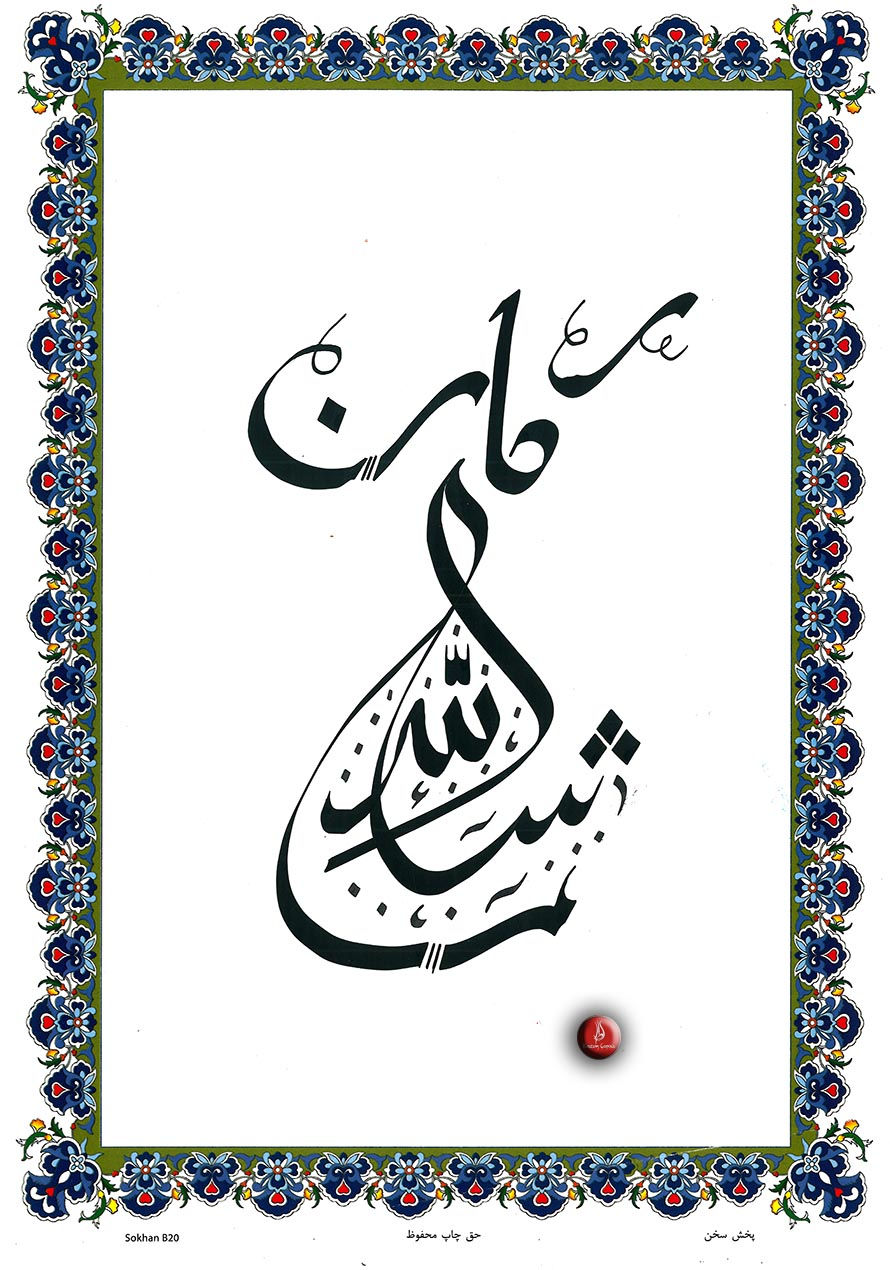 ما شاء الله کان
پخش سخن
حق چاپ محفوظ
Sokhan B20